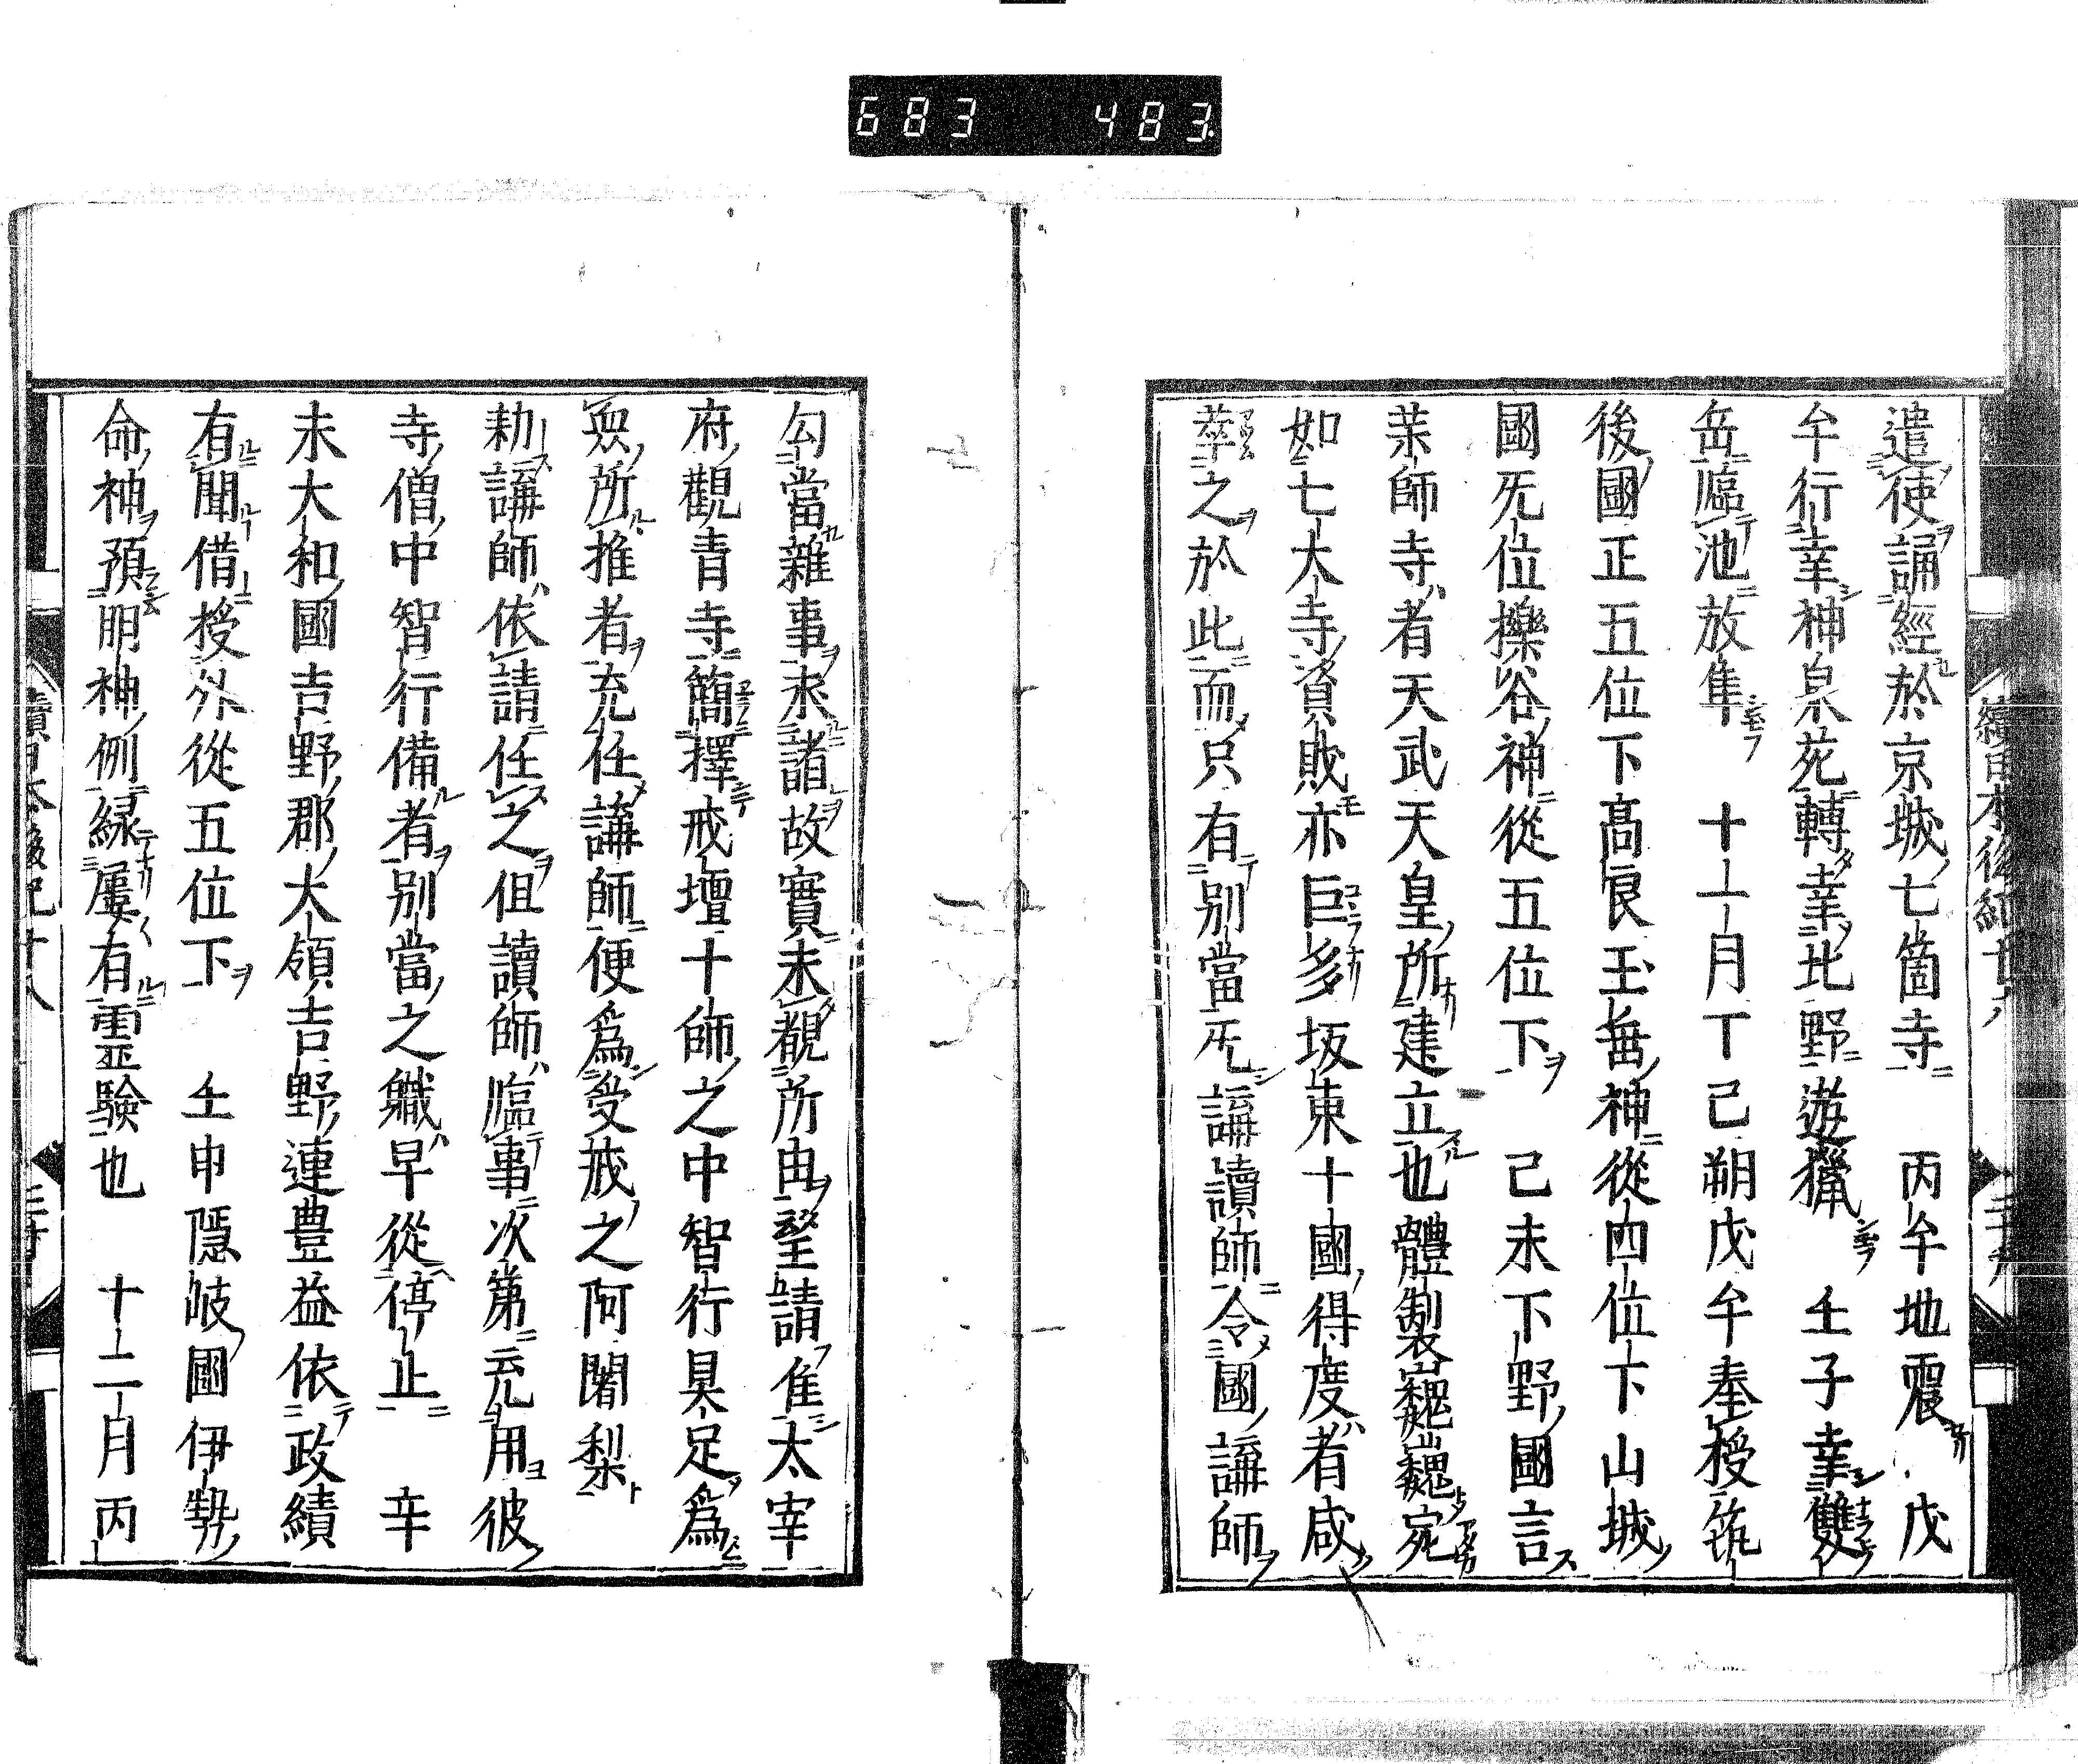 683 483
遣使誦經於京城七箇寺 丙午地震 戊
午行幸神泉苑轉幸北野遊獵 壬子幸雙
岳臨池放隼 十一月丁己朔戊午奉授筑
後國正五位下高良玉垂神從四位下山城
國无位櫟谷神從五位下 己未下野國言
藥師寺者天武天皇所建立也體製巍巍宛
如七大寺資財亦巨多坂東十國得度者咸
萃之於此而只有別當无講讀師令國講師
勾當雜事求諸故實未覩所由望請准太宰
府觀音寺簡擇戒壇十師之中智行具足爲
衆所推者充任講師便爲受戒之阿闍梨
勅講師依請任之但讀師臨事次第充用彼
寺僧中智行備者別當之職早從停止 辛
未大和國吉野郡大領吉野連豊益依政績
有聞借授外從五位下 壬申隱岐國伊勢
命神預明神例緣屢有靈驗也 十二月丙